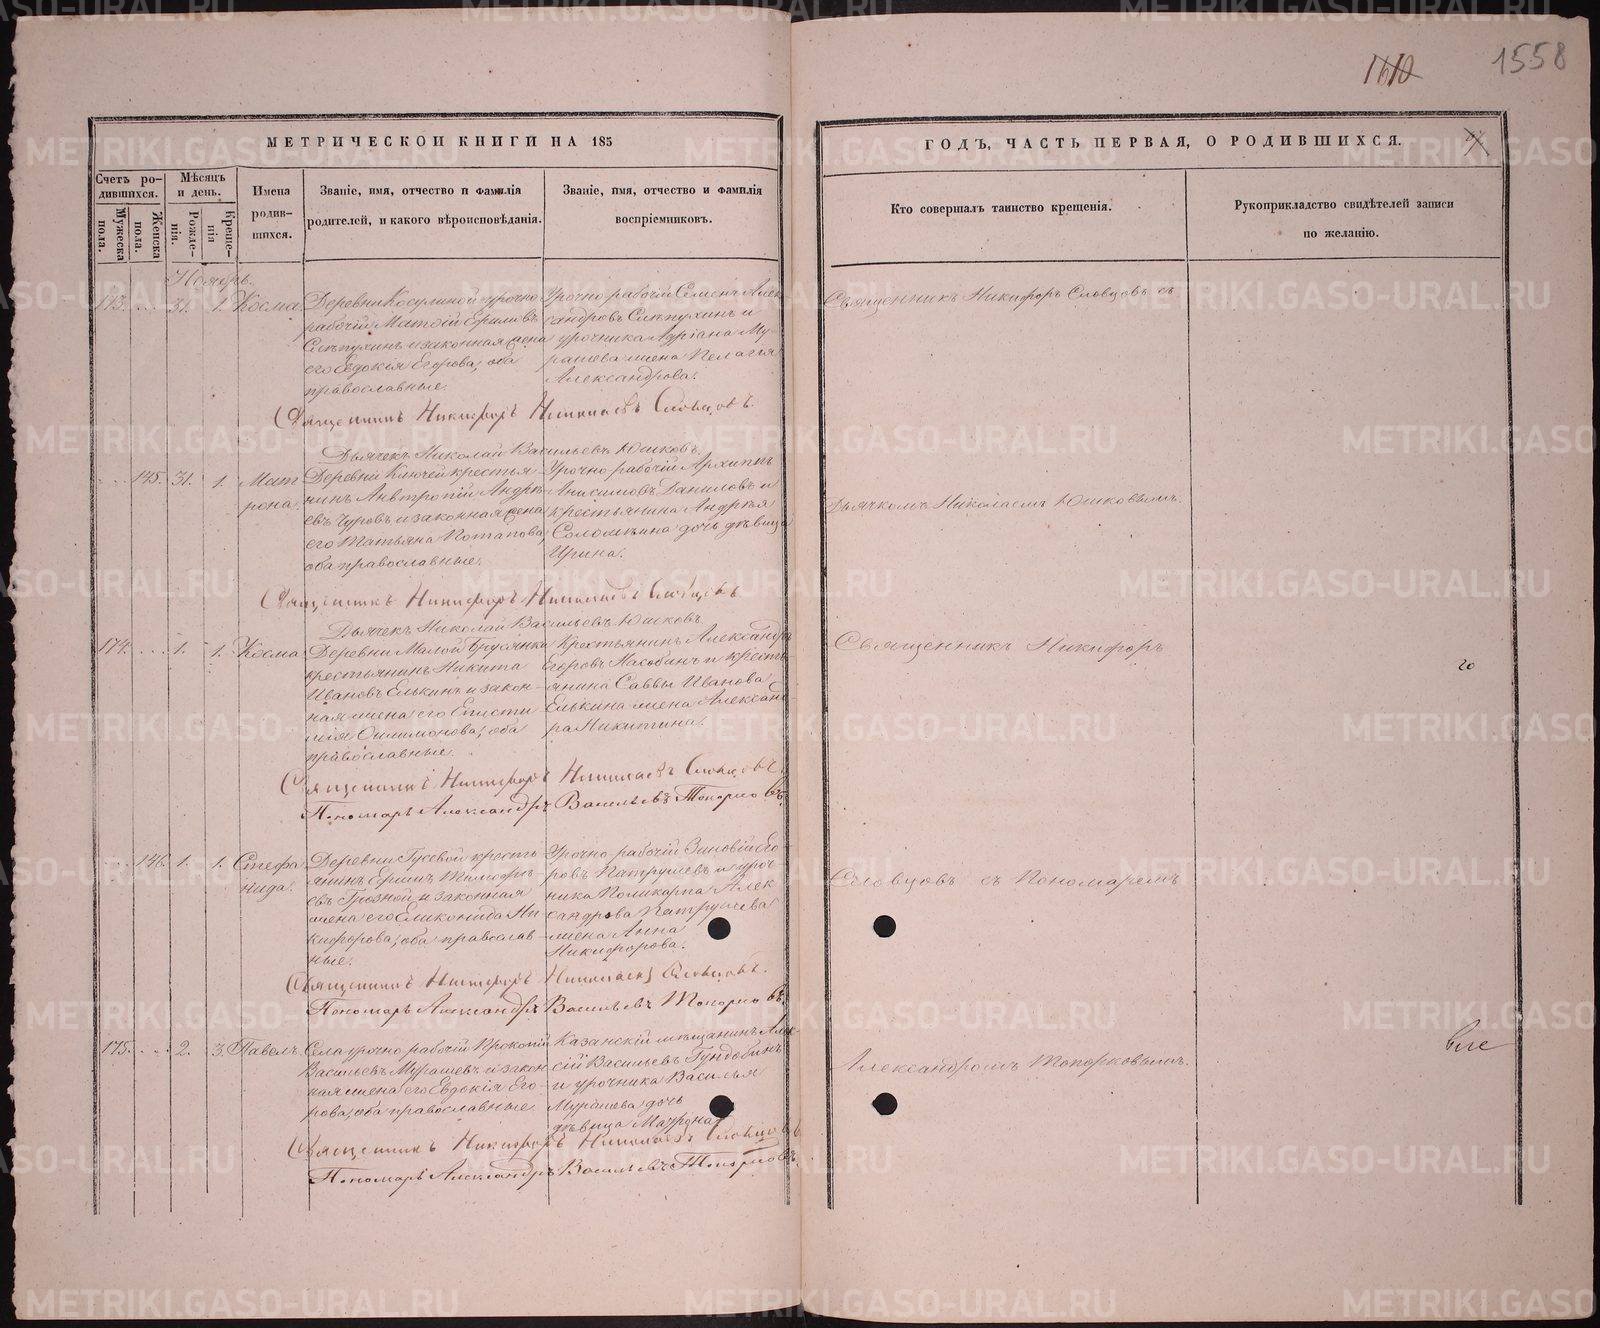 1610
1558
МЕТРИЧЕСКОЙ КНИГИ НА 185
ГОДЪ, ЧАСТЬ ПЕРВАЯ, О РОДИВШИХСЯ.
Счетъ родившихся.
Мужеска пола.
Женска пола.
Мѣсяцъ и день.
Рожденія.
Крещенія
Имена родившихся.
Званіе, имя, отчество и фамилія
родителей, и какого вѣроисповѣданія.
Званіе, имя, отчество и фамилія
воспріемниковъ.
Кто совершалъ таинство крещенія.
Рукоприкладство свидѣтелей записи
по желанію.
Ноябрь.
173. 31. 1. Косма
Деревни Косулиной урочно
рабочій Матѳій Ермиловъ
Слѣпухинъ и законная жена
его Евдокія Егорова, оба
православные.
Урочно рабочій Семенъ Алек
сандровъ Слѣпухинъ и
урочника Адріана Му
рашева жена Пелагія
Александрова.
Священникъ Никифоръ Словцовъ съ
Священникъ Никифоръ Николаевъ Словцовъ.
Дьячекъ Николай Васильевъ Юшковъ.
145. 31. 1. Мат
рона.
Деревни Ключей крестья
нинъ Антропій Андре
евъ Чуровъ и законная жена
его Татьяна Потапова,
оба православные.
Урочно рабочій Архиппъ
Анисимовъ Даниловъ и
крестьянина Андрея
Соломеина дочь дѣвица
Ирина.
Дьячкомъ Николаемъ Юшковымъ.
Священникъ Никифоръ Николаевъ Словцовъ
Дьячекъ Николай Васильевъ Юшковъ
174. 1. 1. Косма
Деревни Малой Брусянки
крестьянинъ Никита
Ивановъ Елькинъ и закон-
ная жена его Еписти
мія Филимонова, оба
православные.
Крестьянинъ Александръ
Егоровъ Насобинъ и кресть
янина Саввы Иванова
Елькина жена Александ
ра Никитина.
Священникъ Никифоръ
20
Священникъ Никифоръ Николаевъ Словцовъ.
Пономарь Александръ Васильевъ Топорковъ.
146. 1. 1. Стефа
нида.
Деревни Гусевой кресть
янинъ Ермилъ Тимофе
евъ Грозной и законная
жена его Еликонида Ни
кифорова, оба православ-
ные.
Урочно рабочій Зиновій Его-
ровъ Патрушевъ и уроч
ника Поликарпа Алек
сандрова Патрушева
жена Анна
Никифорова.
Словцовъ съ Пономаремъ
Священникъ Никифоръ Николаевъ Словцовъ.
Пономарь Александръ Васильевъ Топорковъ.
175. 2. 3. Павелъ.
Села урочно рабочій Прокопій
Васильевъ Мурашевъ и закон
ная жена его Евдокія Его-
рова, оба православные.
Казанскій мѣщанинъ Алек-
сій Васильевъ Гундобинъ
и урочника Василья
Мурашева дочь
дѣвица Матрона.
Александромъ Топорковымъ.
Священникъ Никифоръ Николаевъ Словцовъ
Пономарь Александръ Васильевъ Топорковъ.